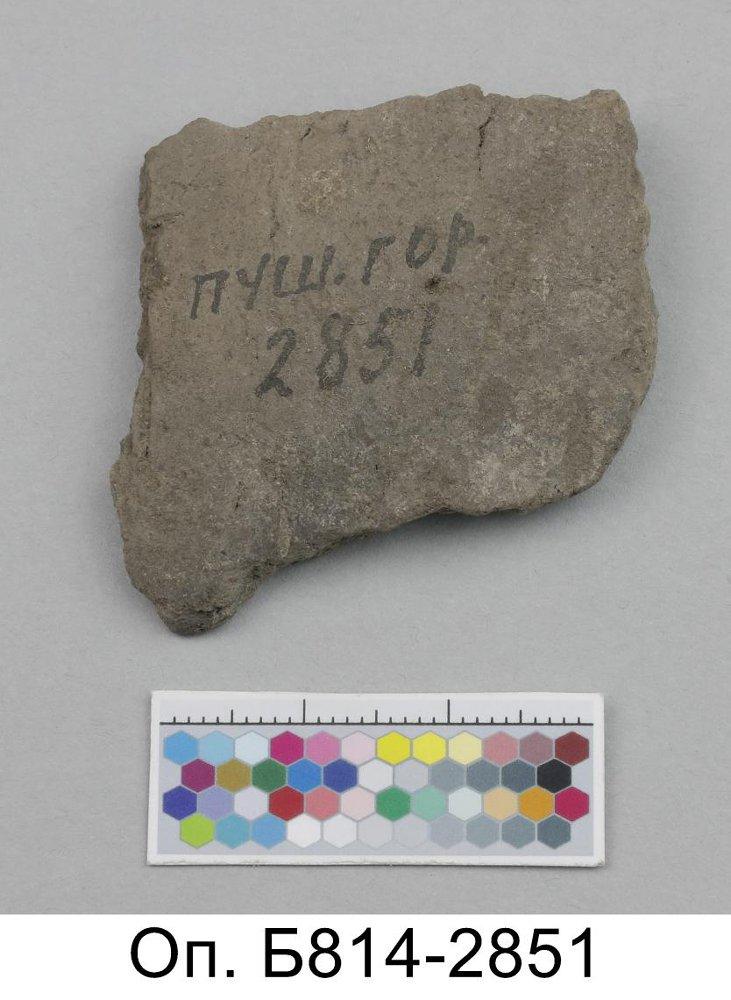 ПУШ. ГОР.
2851
Оп. Б814-2851